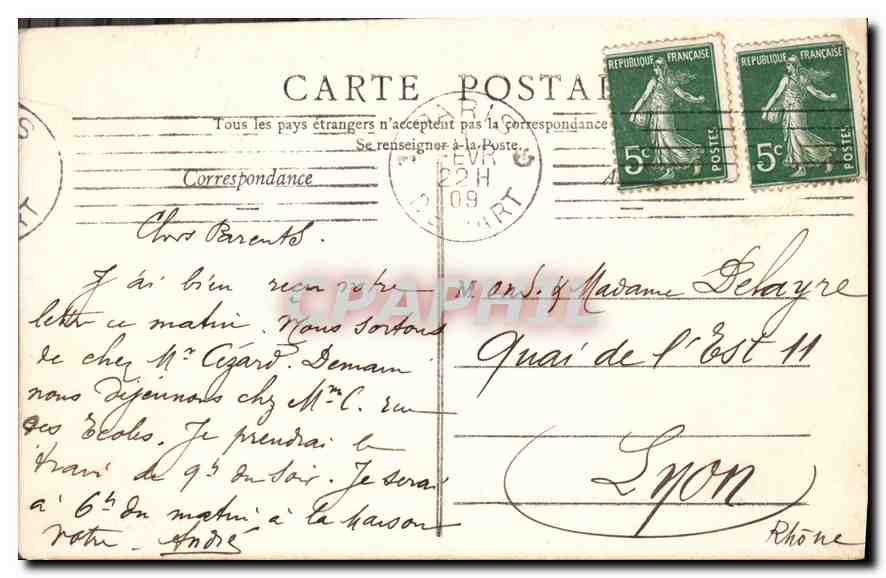 CARTE POSTAL
Tous les pays étrangers n'acceptent pas la correspondance
Se renseigner à la Poste.
Correspondance
PARIS
FEVR
22 H
09
REPUBLIQUE FRANÇAISE
5c
POSTES
REPUBLIQUE FRANÇAISE
5c
POSTES
Chers Parents.
J'ai bien reçu votre
lettre ce matin. Nous sortons
de chez Mr Cézard. Demain
nous déjeunons chez Mme C. rue
des Ecoles. Je prendrai le
train de 9h du soir. Je serai
à 6h du matin à la maison
votre André
M. & Madame Delayre
Quai de l'Est 11
Lyon
Rhône
CPAPHIL